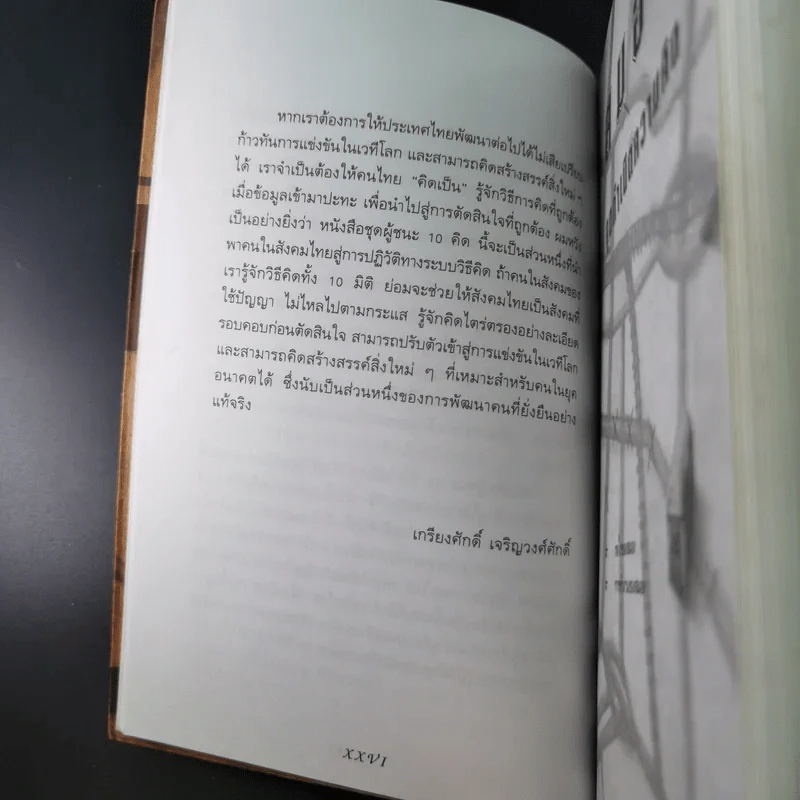 หากเราต้องการให้ประเทศไทยพัฒนาต่อไปได้ไม่เสียเปรียบ
ก้าวทันการแข่งขันในเวทีโลก และสามารถคิดสร้างสรรค์สิ่งใหม่ ๆ
ได้ เราจำเป็นต้องให้คนไทย “คิดเป็น” รู้จักวิธีการคิดที่ถูกต้อง
เมื่อข้อมูลเข้ามาปะทะ เพื่อนำไปสู่การตัดสินใจที่ถูกต้อง ผมหวัง
เป็นอย่างยิ่งว่า หนังสือชุดผู้ชนะ 10 คิด นี้จะเป็นส่วนหนึ่งที่นำ
พาคนในสังคมไทยสู่การปฏิวัติทางระบบวิธีคิด ถ้าคนในสังคมของ
เรารู้จักวิธีคิดทั้ง 10 มิติ ย่อมจะช่วยให้สังคมไทยเป็นสังคมที่
ใช้ปัญญา ไม่ไหลไปตามกระแส รู้จักคิดไตร่ตรองอย่างละเอียด
รอบคอบก่อนตัดสินใจ สามารถปรับตัวเข้าสู่การแข่งขันในเวทีโลก
และสามารถคิดสร้างสรรค์สิ่งใหม่ ๆ ที่เหมาะสำหรับคนในยุค
อนาคตได้ ซึ่งนับเป็นส่วนหนึ่งของการพัฒนาคนที่ยั่งยืนอย่าง
แท้จริง
เกรียงศักดิ์ เจริญวงศ์ศักดิ์
XXVI